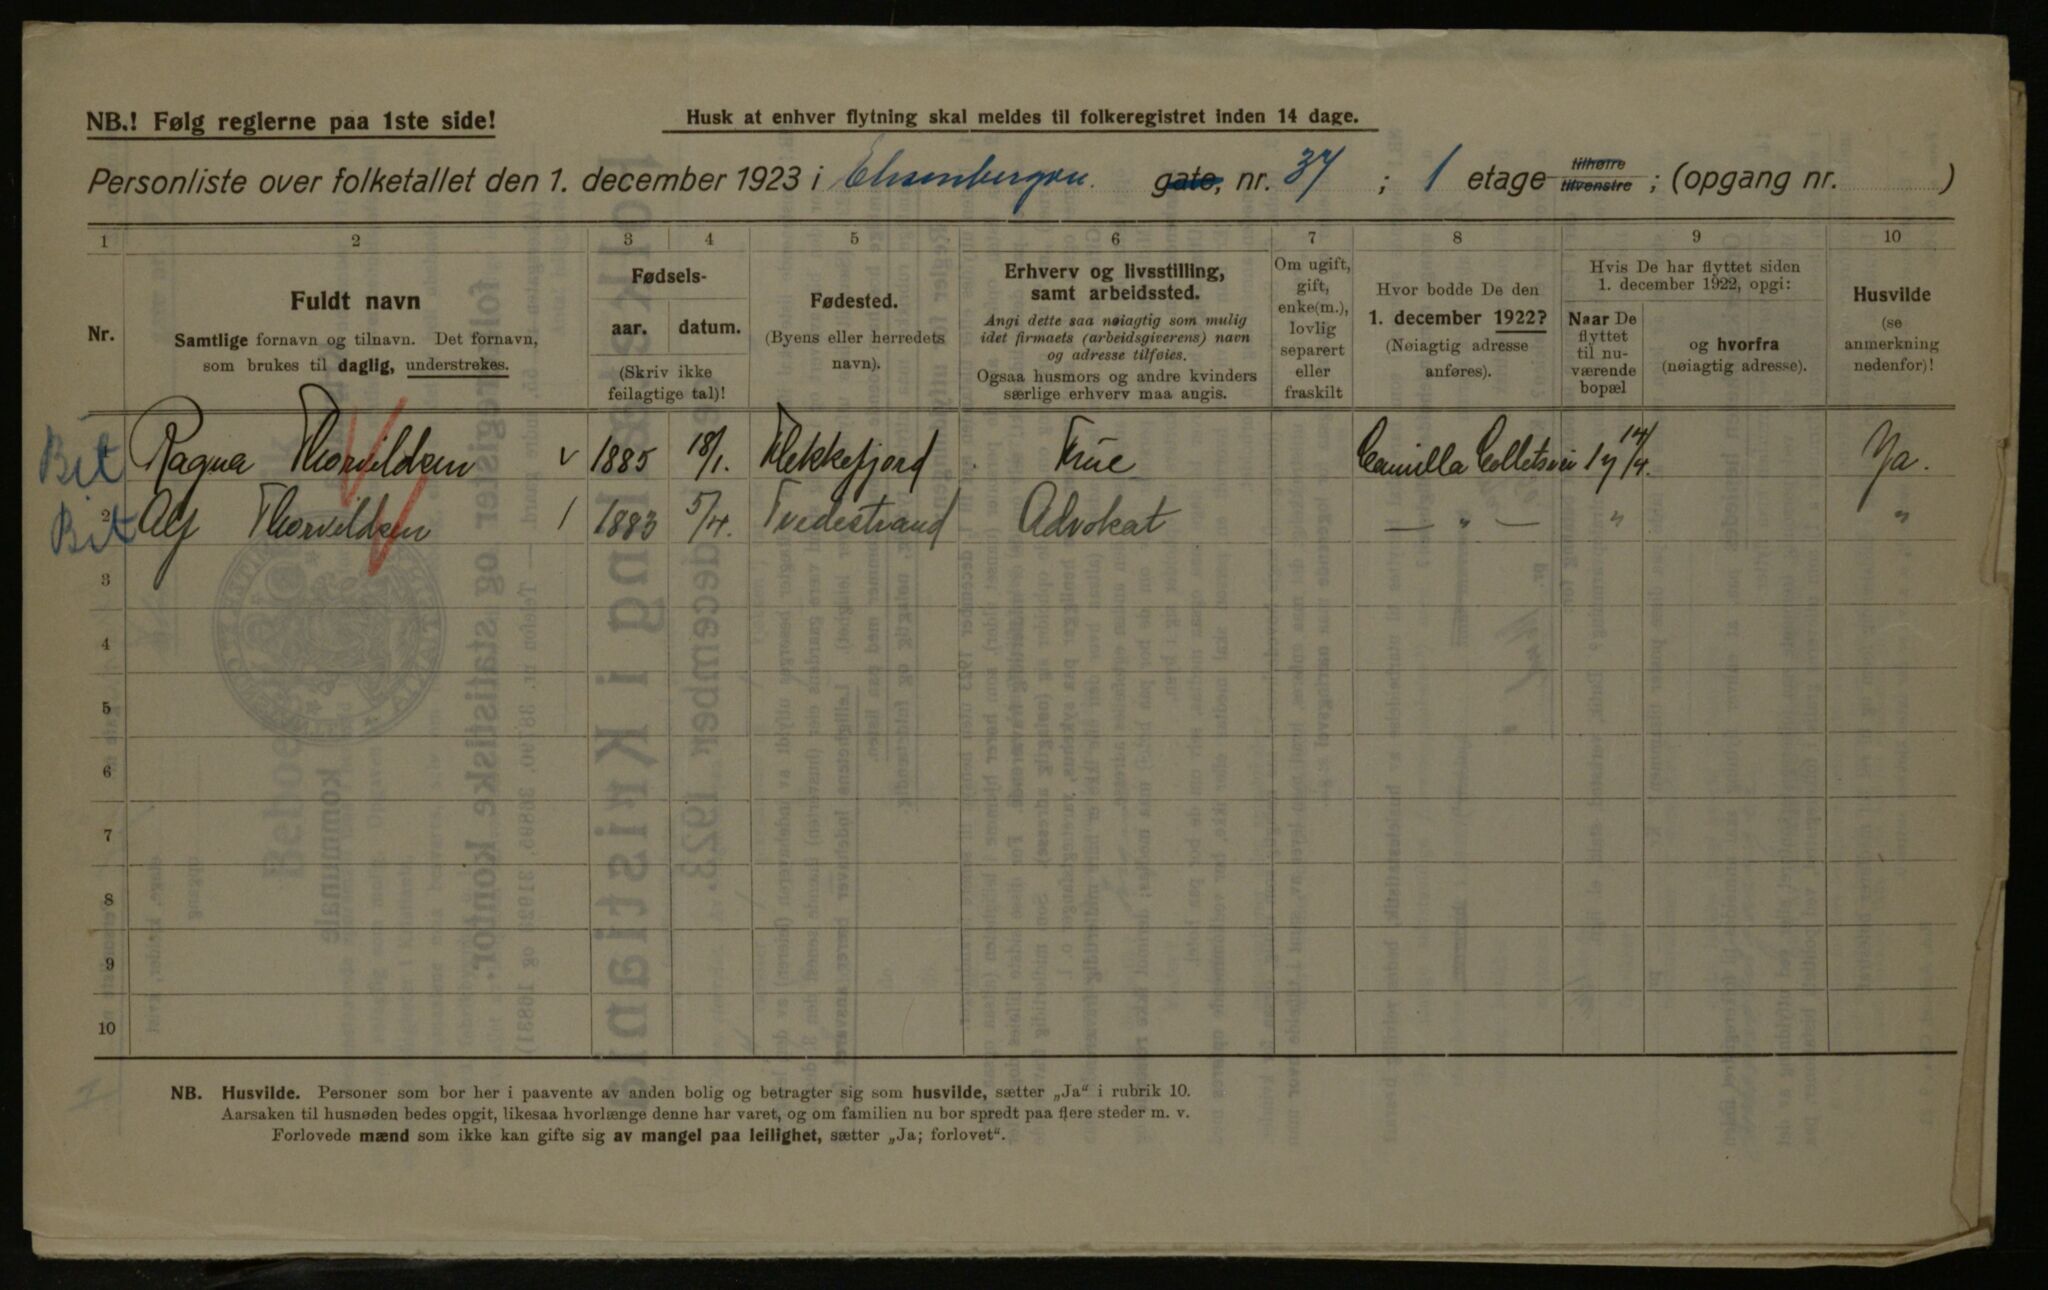 NB.! Følg reglerne paa 1ste side!
Husk at enhver flytning skal meldes til folkeregistret inden 14 dage.
Personliste over folketallet den 1. december 1923 i Elisenbergvn. gate, nr. 37 ; 1 etage tilhøire tilvenstre ; (opgang nr. )
1 2 3 4 5 6 7 8 9 10
Nr.
Fuldt navn
Samtlige fornavn og tilnavn. Det fornavn,
som brukes til daglig, understrekes.
Fødsels-
aar. datum.
(Skriv ikke
feilagtige tal)!
Fødested.
(Byens eller herredets
navn).
Erhverv og livsstilling,
samt arbeidssted.
Angi dette saa nøiagtig som mulig
idet firmaets (arbeidsgiverens) navn
og adresse tilføies.
Ogsaa husmors og andre kvinders
særlige erhverv maa angis.
Om ugift,
gift,
enke(m.),
lovlig
separert
eller
fraskilt
Hvor bodde De den
1. december 1922?
(Nøiagtig adresse
anføres).
Hvis De har flyttet siden
1. december 1922, opgi:
Naar De
flyttet
til nu-
værende
bopæl
og hvorfra
(nøiagtig adresse).
Husvilde
(se
anmerkning
nedenfor)!
Bit Ragna Thorvildsen v 1885 18/1. Flekkefjord Frue Camilla Colletsvei 17 14/4. Ja.
Bit 2 Alf Thorvildsen 1 1883 5/4. Tvedestrand Advokat — " — " "
3
4
5
6
7
8
9
10
NB. Husvilde. Personer som bor her i paavente av anden bolig og betragter sig som husvilde, sætter „Ja“ i rubrik 10.
Aarsaken til husnøden bedes opgit, likesaa hvorlænge denne har varet, og om familien nu bor spredt paa flere steder m. v.
Forlovede mænd som ikke kan gifte sig av mangel paa leilighet, sætter „Ja; forlovet“.